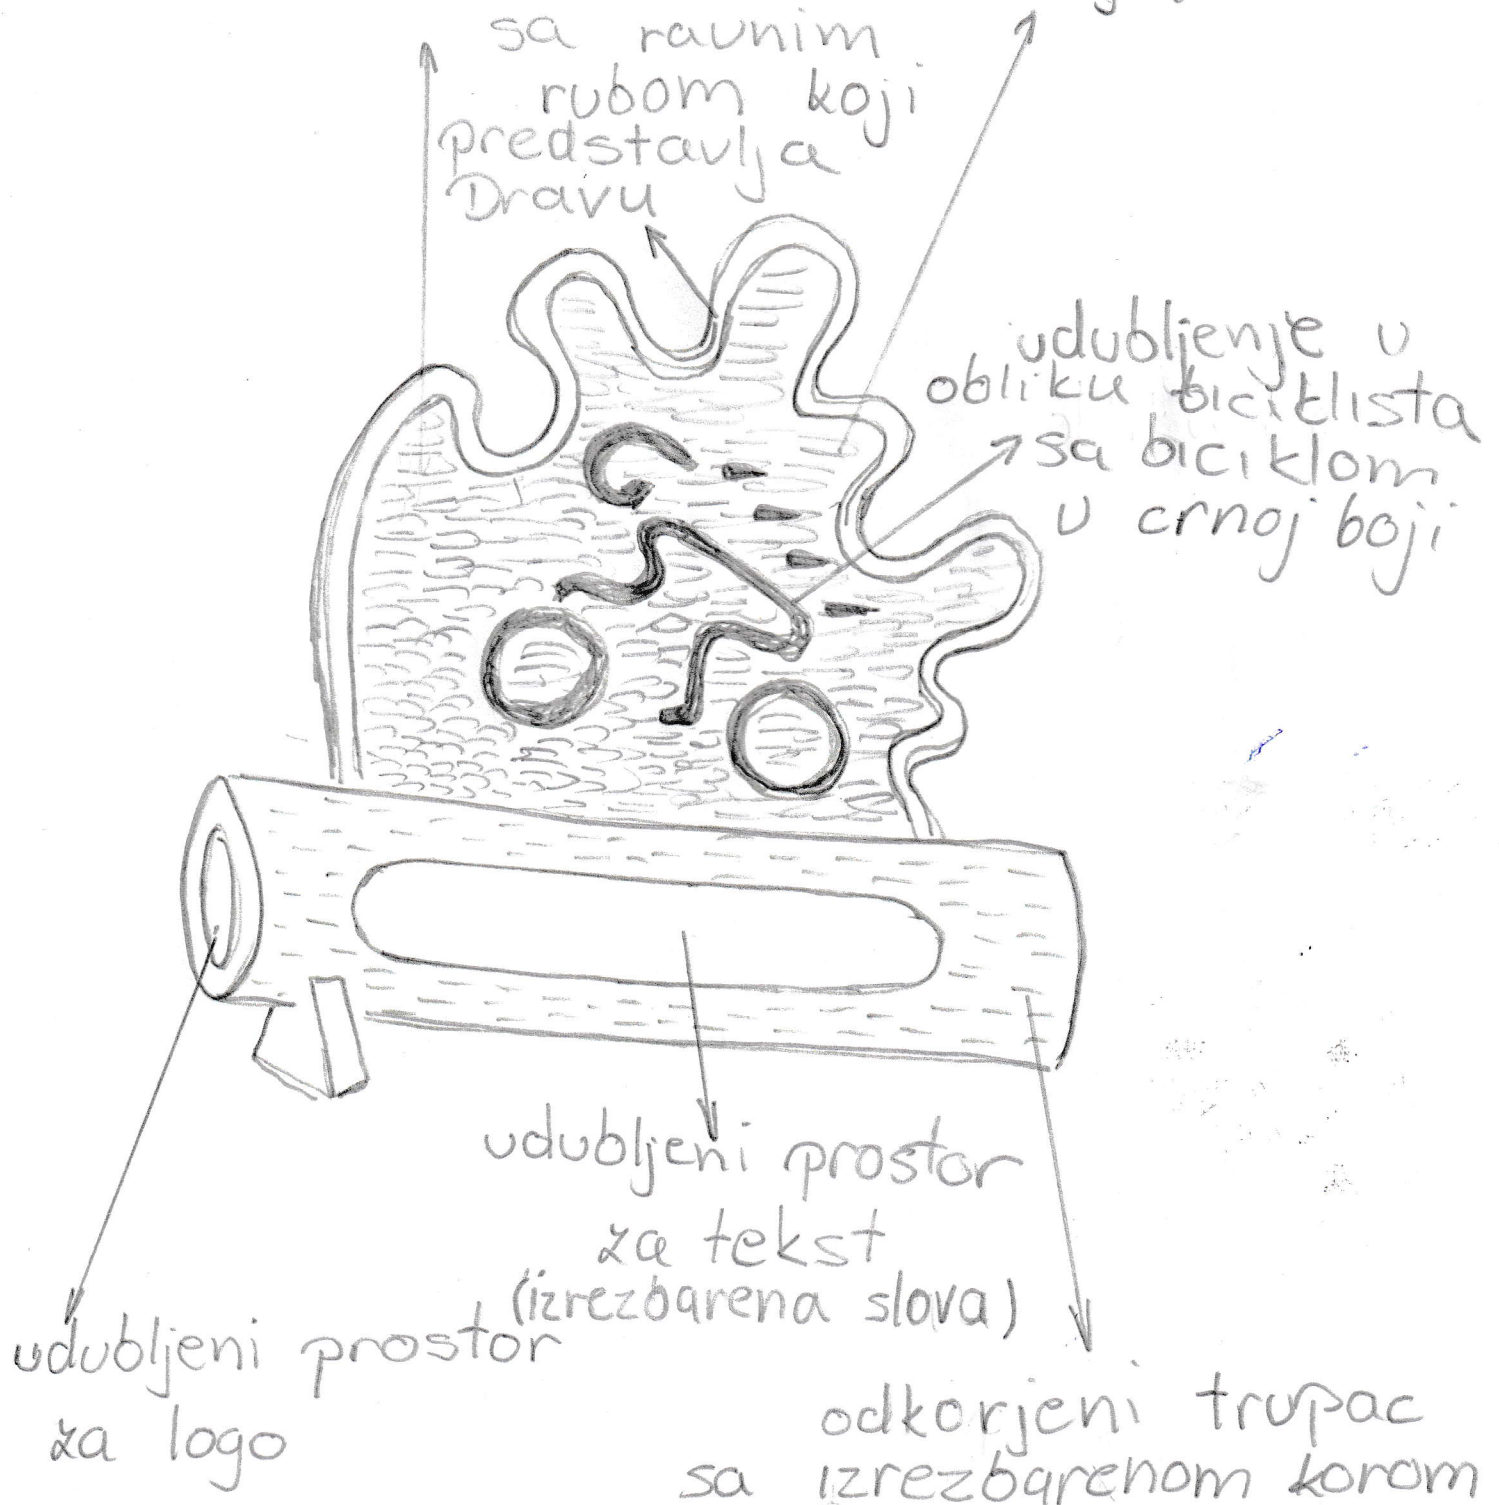 sa ravnim
rubom koji
predstavlja
Dravu
udubljenje u
obliku biciklista
sa biciklom
u crnoj boji
udubljeni prostor
za tekst
(izrezbarena slova)
udubljeni prostor
za logo
odkorjeni trupac
sa izrezbarenom korom